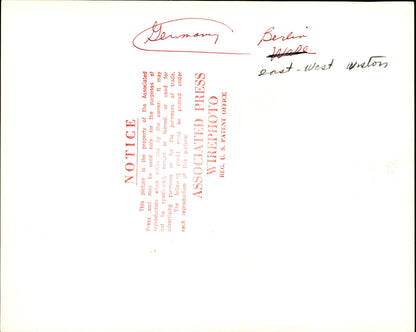 Germany
Berlin
Wall
East-West Visitors
NOTICE
This picture is the property of the Associated
Press and may be used only for the purposes of
reproduction when authorized by the owner. It may
not be syndicated, rented or loaned, or used for
advertising purposes or for purposes of trade.
The following credit must be printed under
each reproduction of this picture:
ASSOCIATED PRESS
WIREPHOTO
REG. U. S. PATENT OFFICE